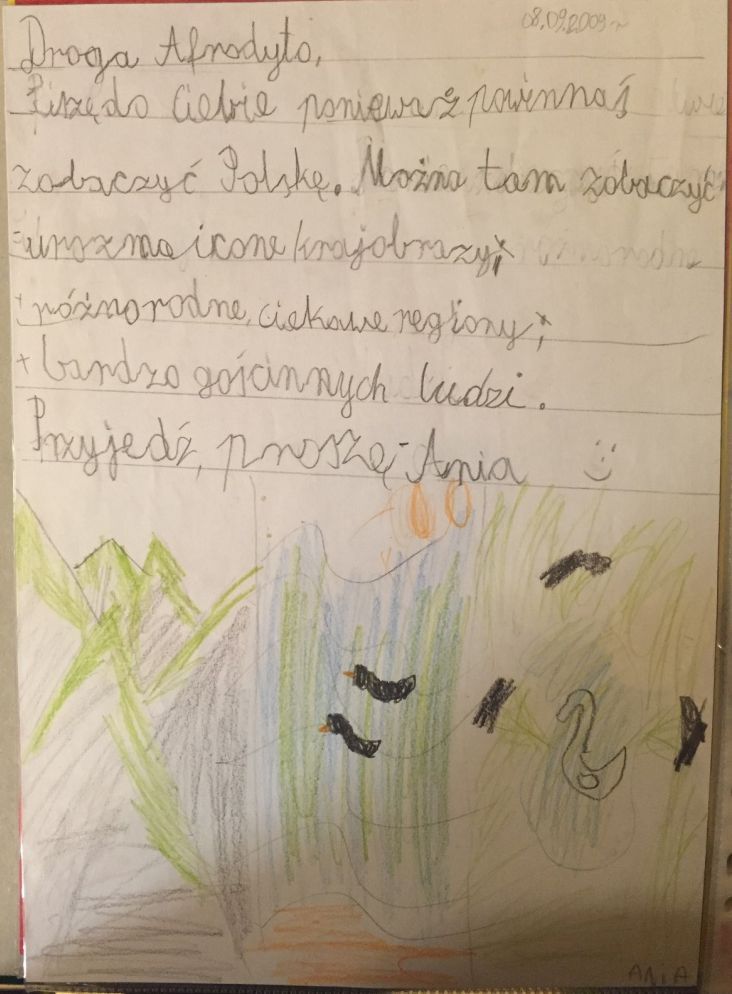 08.09.2009r
Droga Afrodyto,
Piszę do Ciebie ponieważ powinnaś
zobaczyć Polskę. Można tam zobaczyć
-urozmaicone krajobrazy;
+różnorodne, ciekawe regiony;
+bardzo gościnnych ludzi.
Przyjedź, proszę - Ania
ANIA